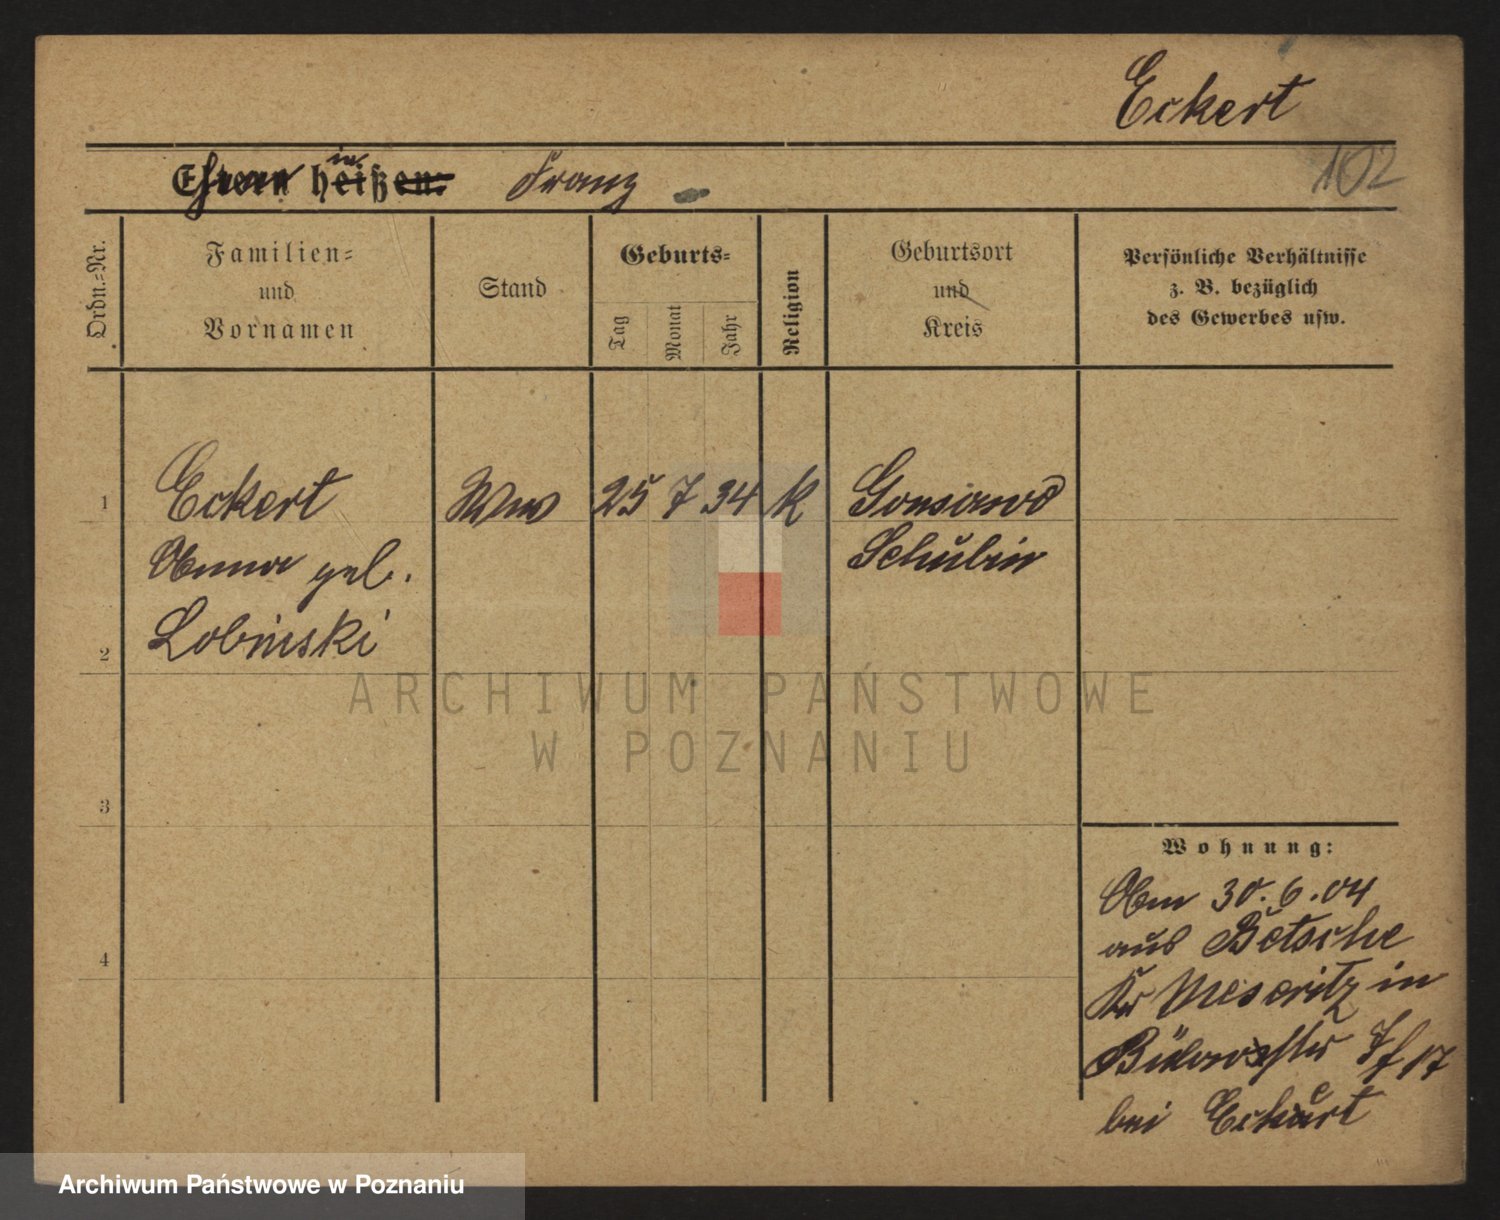 Eckert
102
Franz
Ordn.-Nr.
Familien-
und
Vornamen
Stand
Geburts-
Tag
Monat
Jahr
Religion
Geburtsort
und
Kreis
Persönliche Verhältnisse
z. B. bezüglich
des Gewerbes usw.
1
Eckert
Anna geb.
Lobinski
Wwe
25
7
34
k
Gonsawo
Schubin
2
3
4
ARCHIWUM PAŃSTWOWE
W POZNANIU
Wohnung:
Am 30.6.04
aus Betsche
Kr Meseritz in
17
bei Eckert
Archiwum Państwowe w Poznaniu